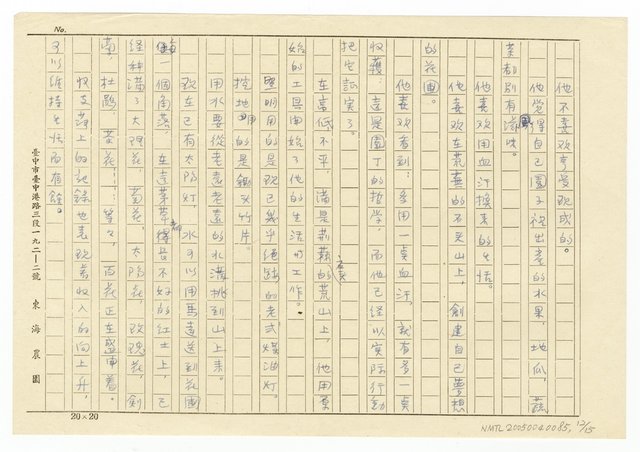 No.
他不喜歡享受現成的。
他覺得自己園子種出來的水果,地瓜,蔬
菜都別有滋味。
他喜歡用血汗換來的生活。
他喜歡在荒蕪的不毛山上,創建自己夢想
的花園。
他喜歡看到:多用一點血汗,就有多一點
收穫:這是園丁的哲學,而他已經以實際行動
把它証實了。
在高低不平,滿是荊蘇的荒山上,他用
始的工具開始了他的生活的工作。
照明用的是現已幾乎絕跡的老式煤油灯。
挖地用的是鋤头竹片。
用水要從老遠老遠的水溝挑到山上來。
現在已有太陽灯,水可以用馬達送到花園
每一個角落。在連茅草都長不好的紅土上,已
經種滿了大理花,菊花,太陽花,玫瑰花,劍
蘭,杜鵑,茶花,……等々,百花正在盛開着。
收支簿上的記錄也表現着收入的向上升,
可以維持生活而有餘。
臺中市臺中港路三段一九二—二號 東海農園
20×20
NMTL 20050040085, 12/15